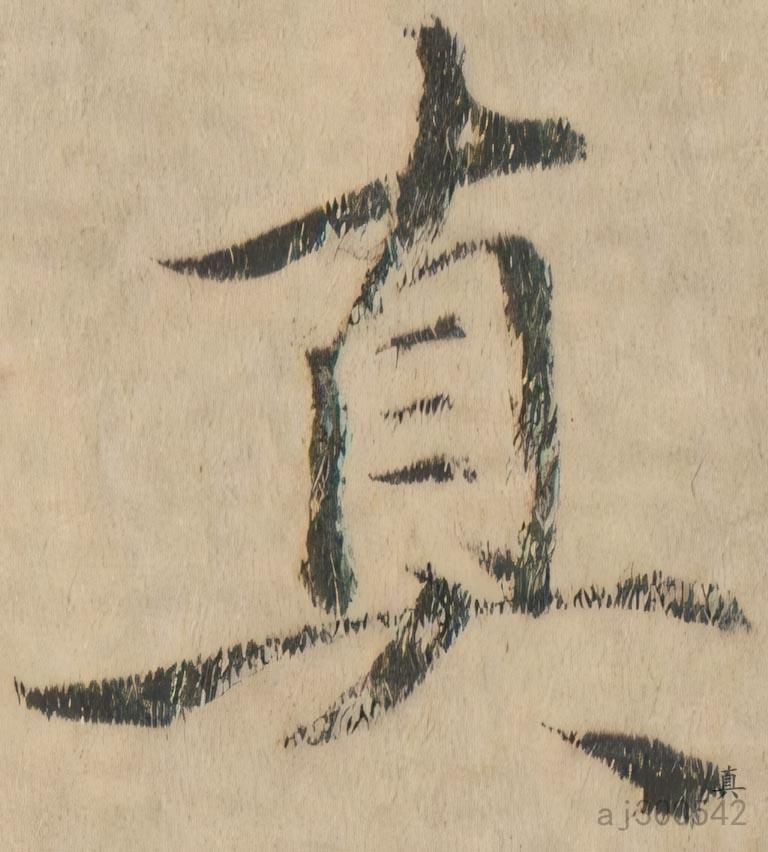 真
真
aj300542